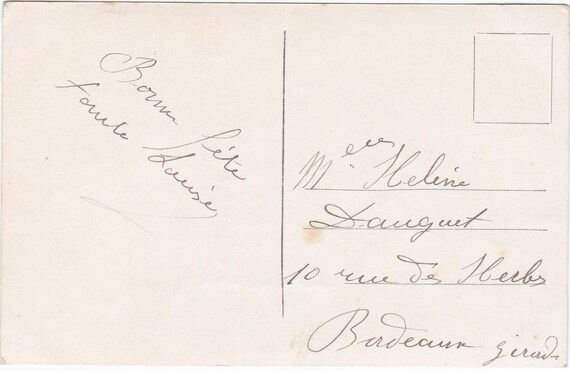 Bonne fête
tante Louise
Melle Helène
Dauguet
10 rue des Herbes
Bordeaux Girond